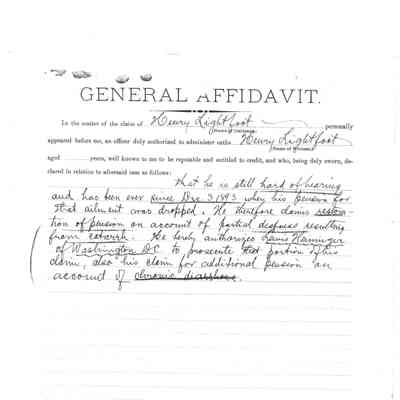 GENERAL AFFIDAVIT.
In the matter of the claim of Henry Lightfoot
(Name of Claimant.)
personally
appeared before me, an officer duly authorized to administer oaths Henry Lightfoot
aged years, well known to me to be reputable and entitled to credit, and who, being duly sworn, de-
clared in relation to aforesaid case as follows:
that he is still hard of hearing
and has been ever since Dec 3 1893 when his pension for
that ailment was dropped. He therefore claims restora-
tion of pension on account of partial deafness resulting
from catarrh. He hereby authorizes
of Washington D.C. to prosecute that portion of his
claim, also his claim for additional pension on
account of chronic diarrhoea.